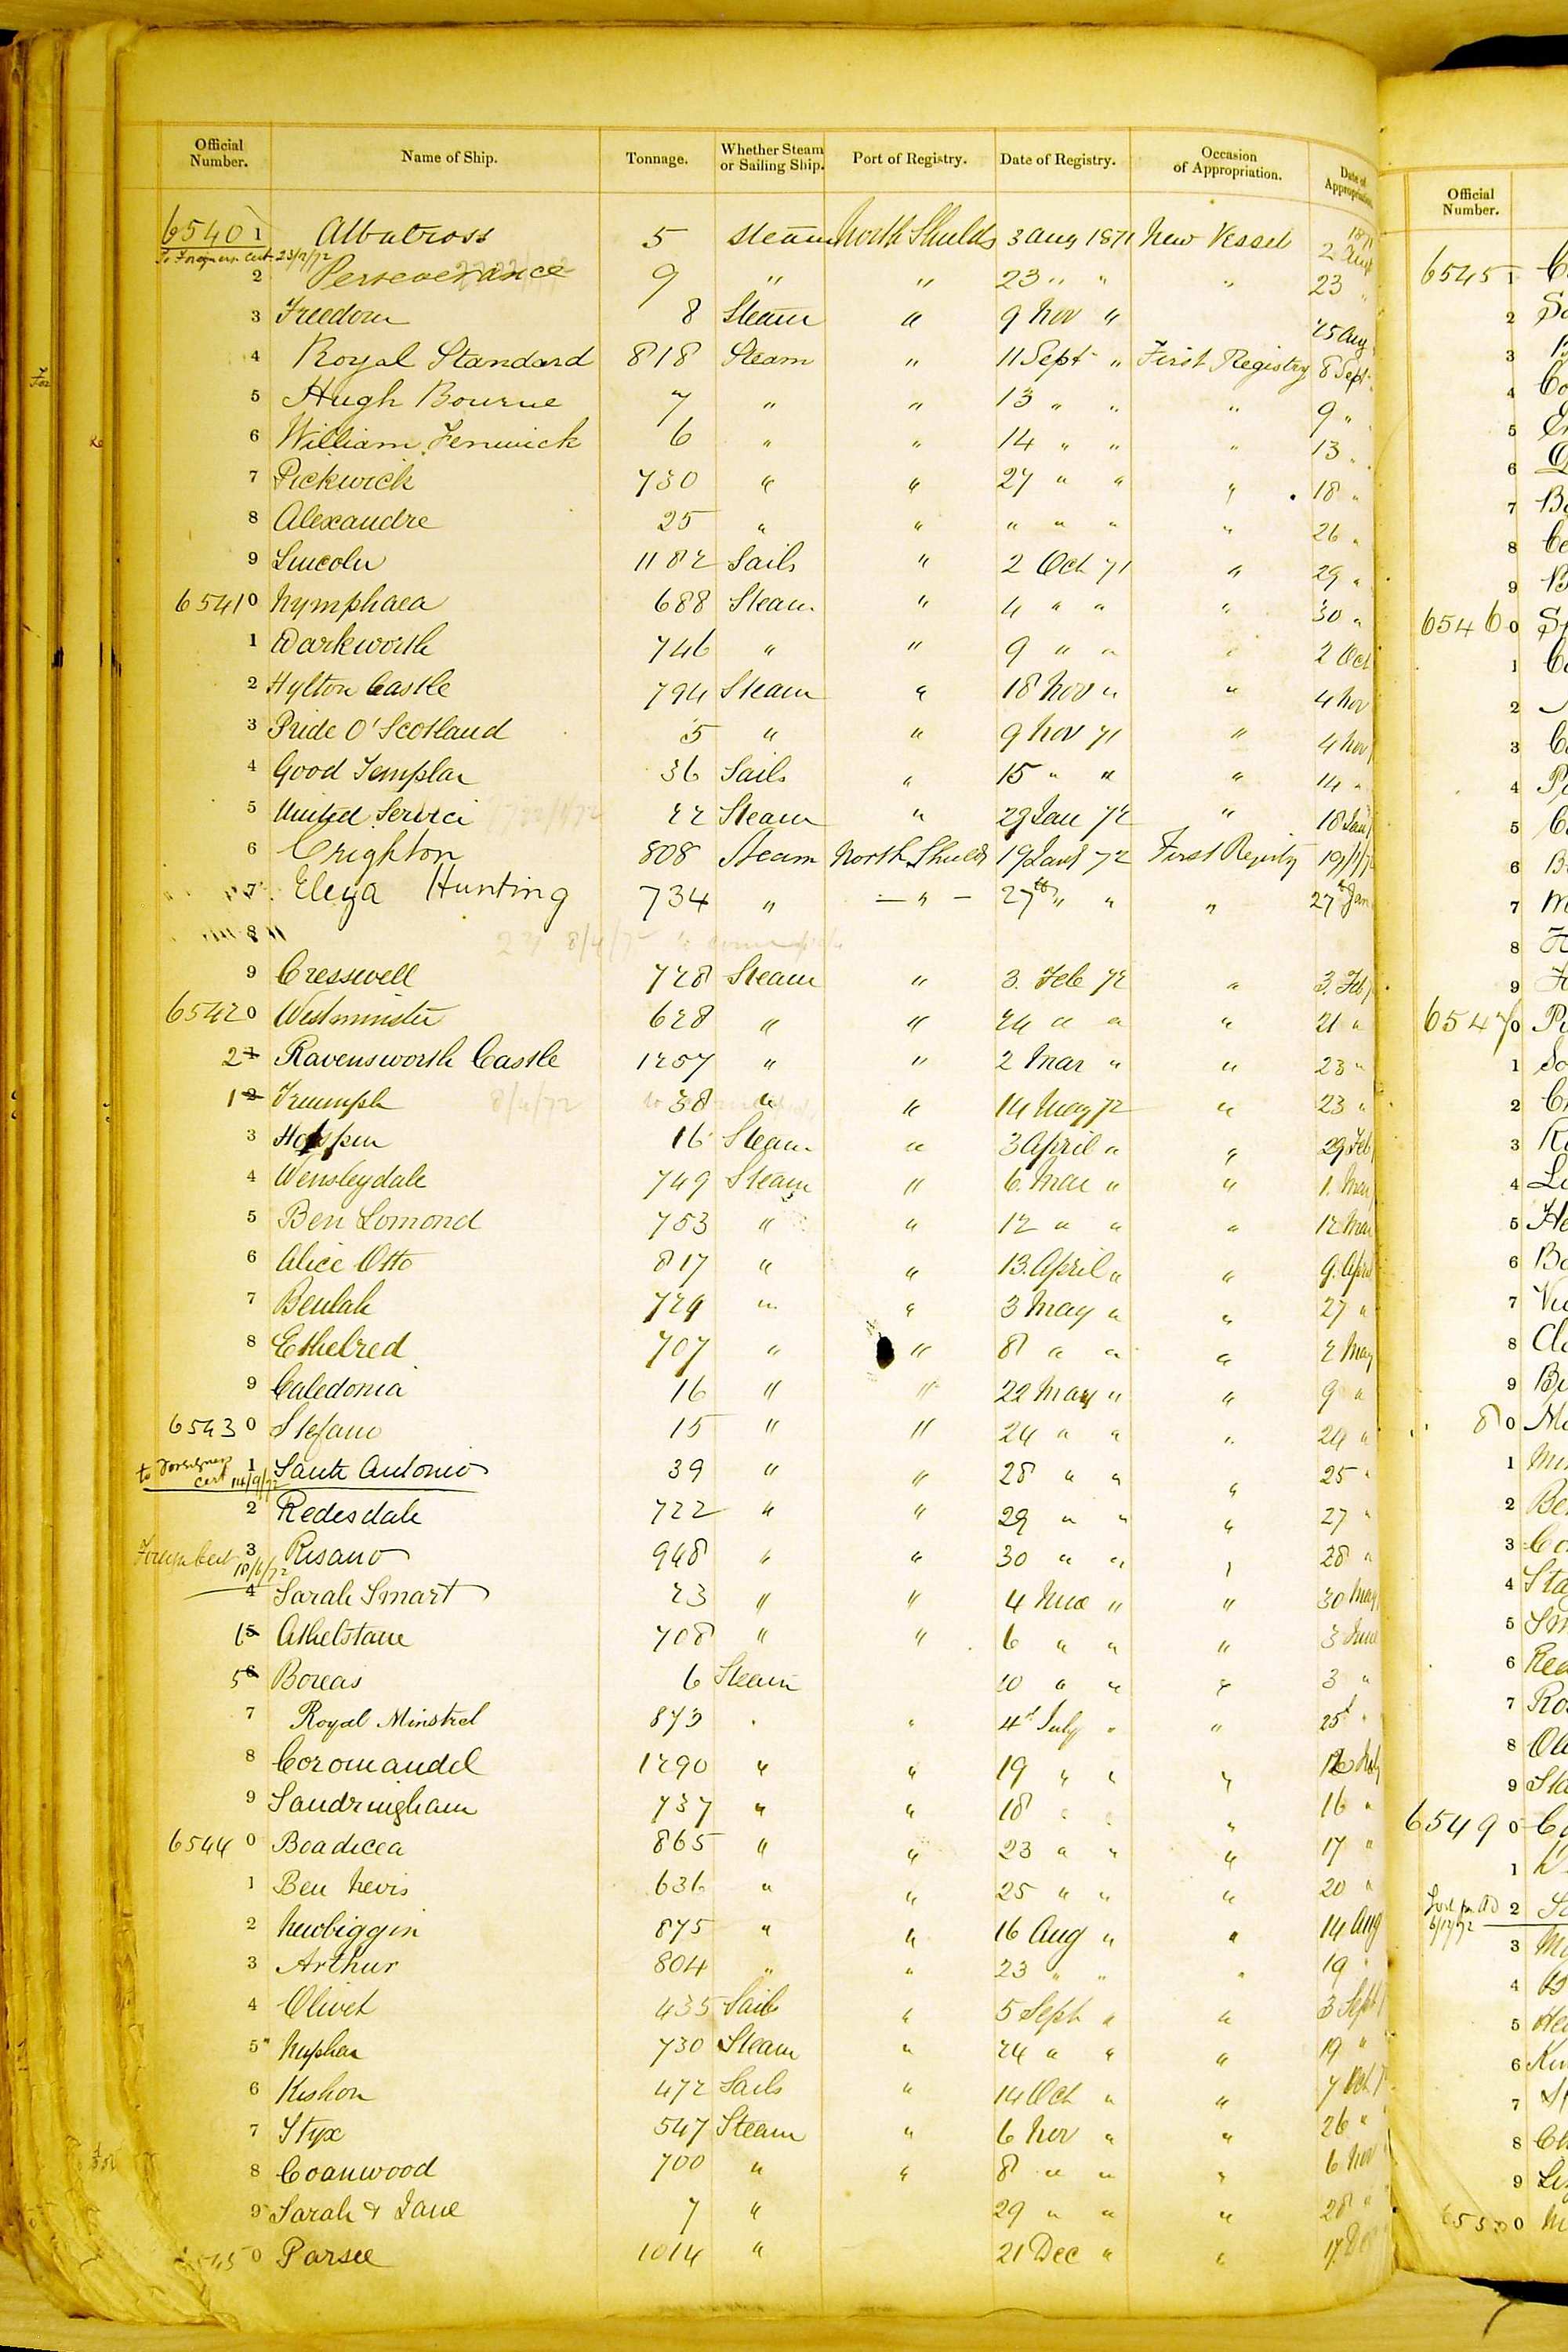 Official Number. Name of Ship. Tonnage. Whether Steam or Sailing Ship. Port of Registry. Date of Registry. Occasion of Appropriation. Date of Appropriation
65401 Albatross 5 Steam North Shields 3 Aug 1871 New Vessel 1871 2 Aug
To Foreigner Cert 23/2/72
2 Perseverance 9 " " 23 " " " 23 "
3 Freedom 8 Steam " 9 Nov " 25 Aug
4 Royal Standard 818 Steam " 11 Sept " First Registry 8 Sept
5 Hugh Bourne 7 " " 13 " " " 9 "
6 William Fenwick 6 " " 14 " " " 13 "
7 Pickwick 730 " " 27 " " " 18 "
8 Alexandre 25 " " " " " " 26 "
9 Lincoln 1182 Sails " 2 Oct 71 " 29 "
65410 Nymphaea 688 Steam " 4 " " " 30 "
1 Warkworth 746 " " 9 " " " 2 Oct
2 Hylton Castle 794 Steam " 18 Nov " " 4 Nov
3 Pride O' Scotland 5 " " 9 Nov 71 " 4 Nov
4 Good Templar 36 Sails " 15 " " " 14 "
5 United Service 22 Steam " 29 Jan 72 " 18 Jan
6 Crighton 808 Steam North Shields 19 Jany 72 First Registry 19/1/72
7 Eliza Hunting 734 " — " — 27th " " " 27th Jan
8
9 Cresswell 728 Steam " 3. Feb 72 " 3. Feb
65420 Westminster 628 " " 24 " " " 21 "
2 Ravensworth Castle 1257 " " 2 Mar " " 23 "
1 Triumph 38 " " 14 May 72 " 23 "
3 16 Steam " 3 April " " 29 Feb
4 Wensleydale 749 Steam " 6. Mar " " 1. Mar
5 Ben Lomond 753 " " 12 " " " 12 Mar
6 Alice Otto 817 " " 13. April " " 9. April
7 Beulah 729 " " 3 May " " 27 "
8 Ethelred 707 " " 8 " " " 2 May
9 Caledonia 16 " " 22 May " " 9 "
65430 Stefano 15 " " 24 " " " 24 "
to Foreigner Cert 14/9/72 1 Sante Antonio 39 " " 28 " " " 25 "
2 Redesdale 722 " " 29 " " " 27 "
Foreign Cert 18/6/72 3 Risano 948 " " 30 " " " 28 "
4 Sarah Smart 23 " " 4 June " " 30 May
6 Athelstane 708 " " 6 " " " 3 June
5 Boreas 6 Steam 10 " " " 3 "
7 Royal Minstrel 873 " " 4 July " " 25 "
8 Coromandel 1290 " " 19 " " " July
9 Sandringham 737 " " 18 " " " 16 "
65440 Boadicea 865 " " 23 " " " 17 "
1 Ben Nevis 636 " " 25 " " " 20 "
2 Newbiggin 875 " " 16 Aug " " 14 Aug
3 Arthur 804 " " 23 " " " 19 "
4 Olivet 435 Sails " 5 Sept " " 3 Sept
5 Nuphar 730 Steam " 24 " " " 19 "
6 Kishon 472 Sails " 14 Oct " " 7 Oct
7 Styx 547 Steam " 6 Nov " " 26 "
8 Coanwood 700 " " 8 " " " 6 Nov
9 Sarah & Jane 7 " 29 " " " 28 "
65450 Parsee 1014 " 21 Dec " " 17 Dec
Official Number.
65451
2
3
4
5
6
7
8
9
65460
1
2
3
4
5
6
7
8
9
65470
1
2
3
4
5
6
7
8
9
80
1
2
3
4
5
6
7
8
9
65490
1
2
3
4
5
6
7
8
9
65500